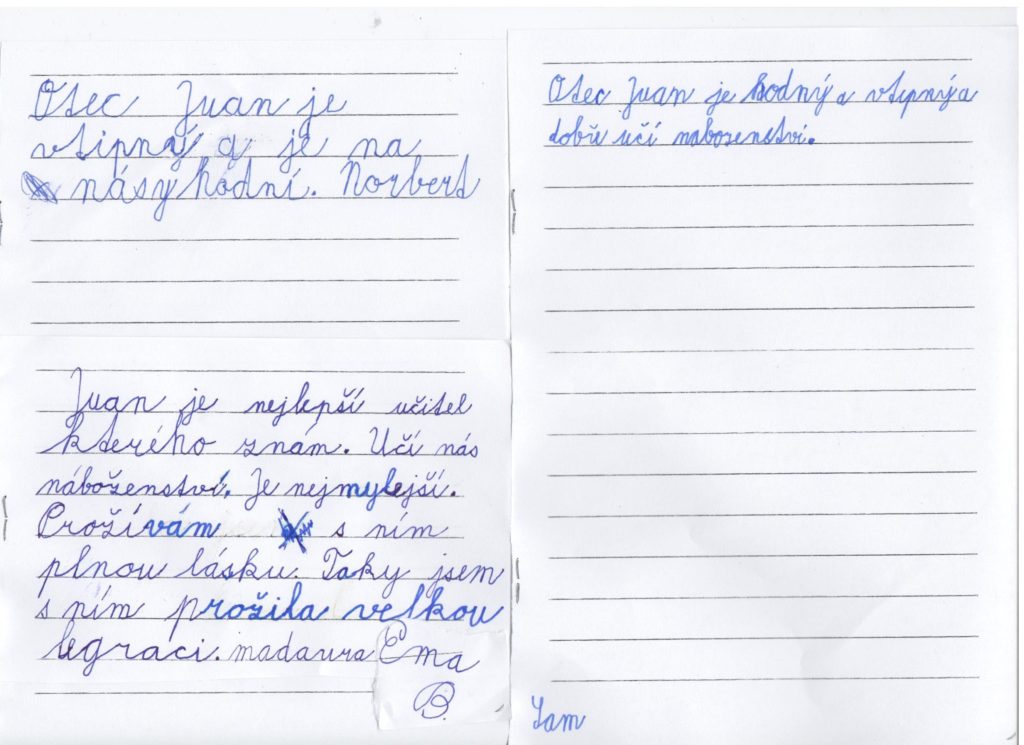 Otec Juan je
vtipný a je na
násy hodní. Norbert
Juan je nejlepší učitel
kterého znám. Učí nás
náboženství. Je nejmylejší.
Prožívám s ním
plnou lásku. Taky jsem
s ním prožila velkou
legraci. Ema
B.
Otec Juan je hodný a vtipný a
dobře učí nabozenství.
Sam